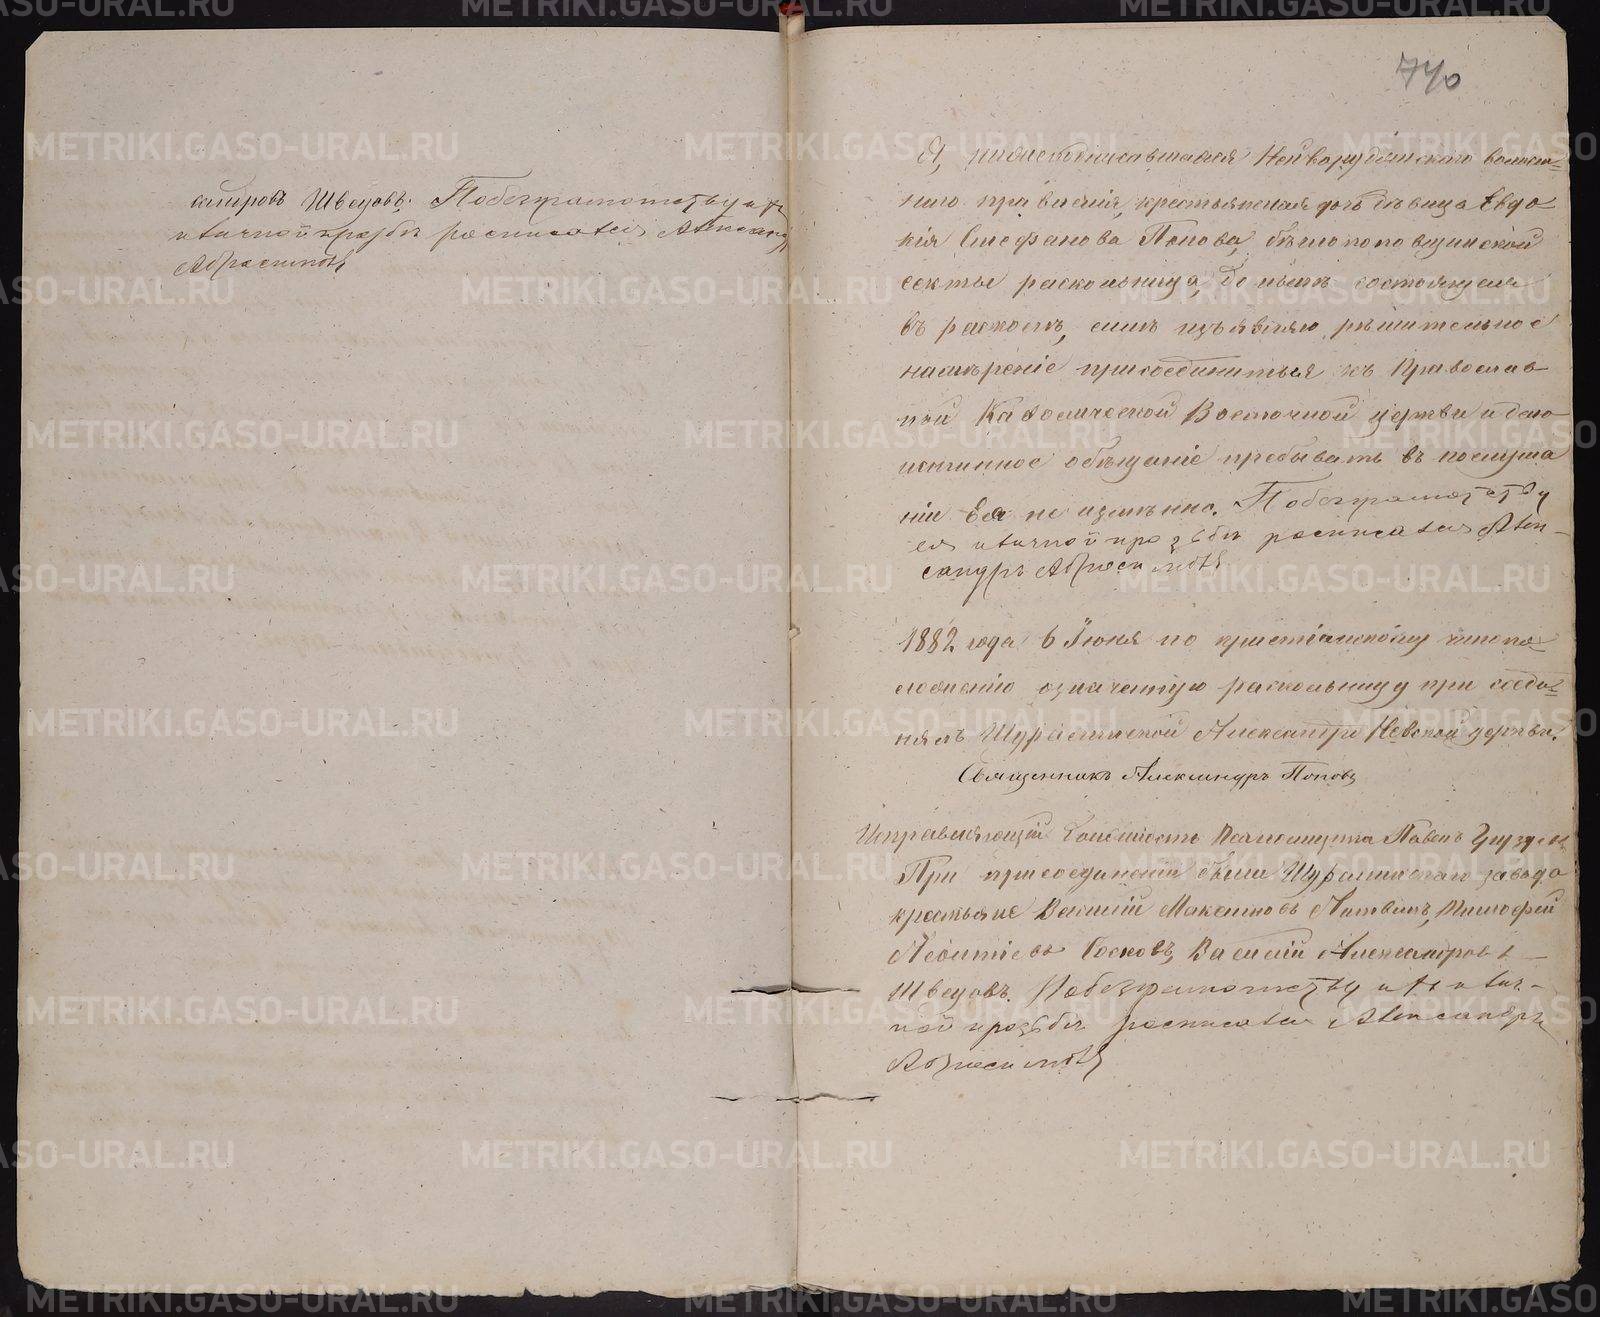 сандровъ Швецовъ. По безграмотству и ихъ
личной прозьбѣ росписался Александръ
Абросимовъ
740
Я, нижеподписавшаяся Нейворудянскаго волост-
наго правленія, крестьянская дочь дѣвица Евдо-
кія Стефанова Попова, бѣглопоповщинской
секты раскольница, до нынѣ состоящая
въ расколѣ, симъ изъявляю рѣшительное
намѣреніе присоединиться къ Православ-
ной Каѳолической Восточной церкви и даю
истинное обѣщаніе пребывать въ послуша
ніи Ея не измѣнно. По безграмотству
ея и личной прозьбѣ росписался Алек-
сандръ Абросимовъ
1882 года 6 Іюня по христіанскому чинопо-
ложенію означенную раскольницу присоеди-
нялъ Шуралинской Александро Невской церкви
Священникъ Александръ Поповъ
Исправляющій должность Псаломщика Павелъ
При присоединеніи были Шуралинскаго завода
крестьяне Василій Максимовъ Литвинъ, Тимофей
Леонтіевъ Госковъ, Василій Александровъ
Швецовъ. По безграмотству и ихъ лич-
ной прозьбѣ росписался Александръ
Абросимовъ
METRIKI.GASO-URAL.RU